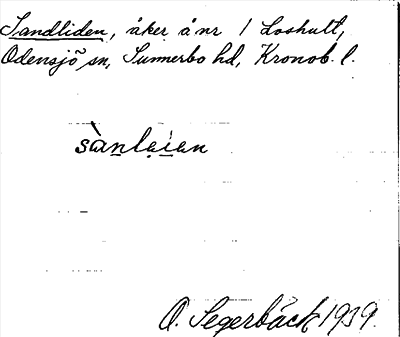 Sandliden, åker å nr 1 Loshult,
Odensjö sn, Sunnerbo hd, Kronob. l.
sànlaian
O. Segerbäck 1939.